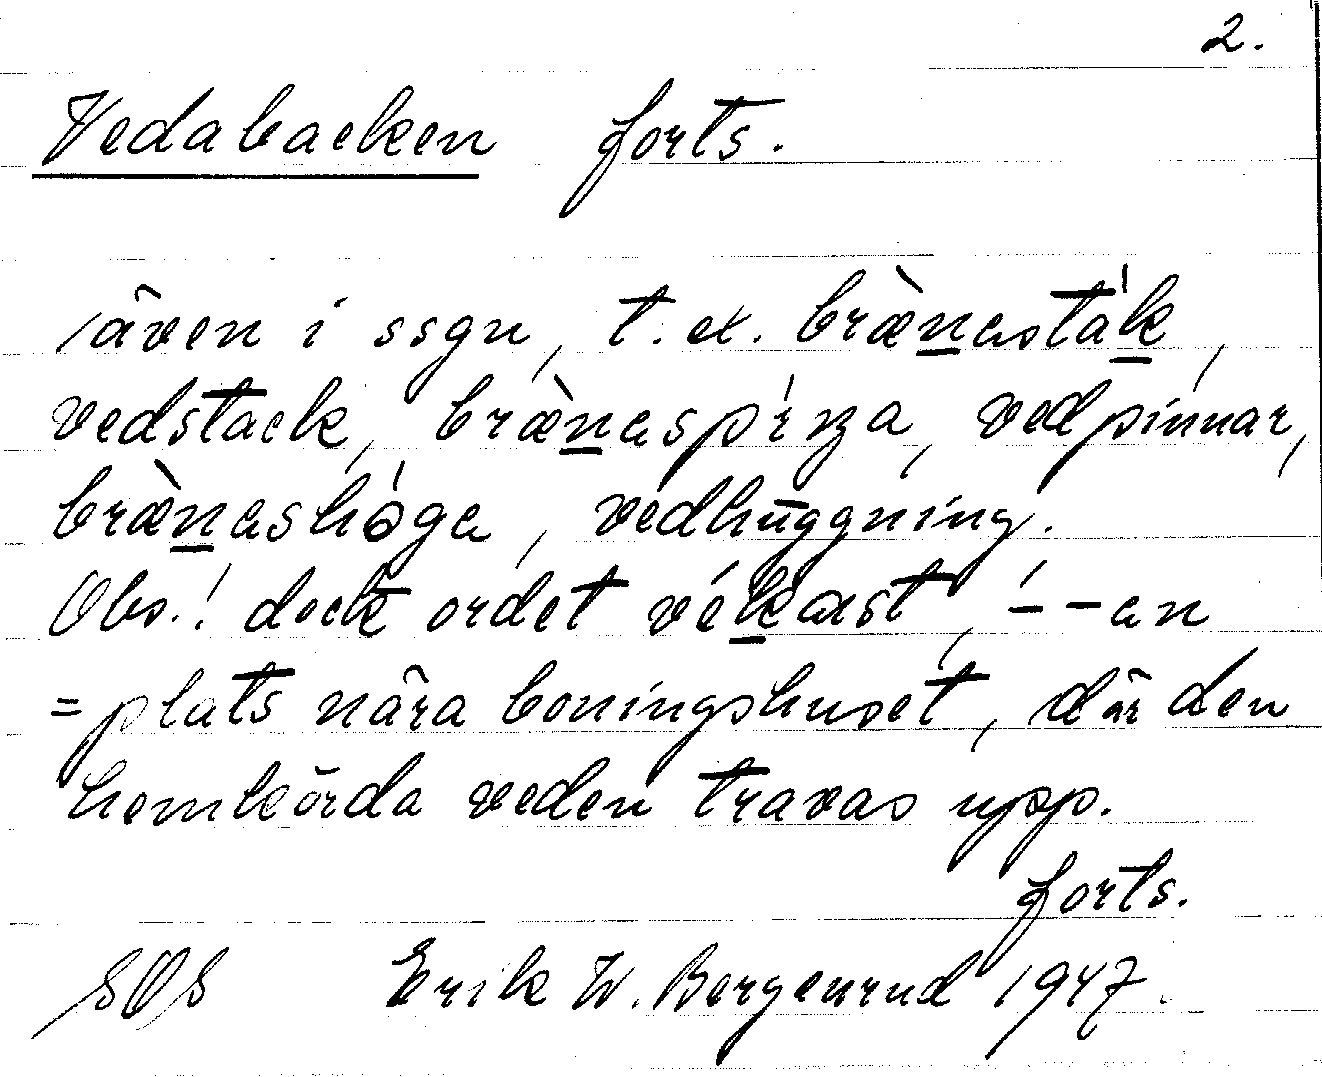 2.
Vedabacken forts.
/även i ssgn, t. ex. bræ̀nɐsták,
vedstack, bræ̀nɐspírza, vedpinnar,
bræ̀nɐshóga, vedhuggning.
Obs.! dock ordet vékast, ´ – –en
= plats nära boningshuset, där den
hemkörda veden travas upp.
forts.
SOS Erik W. Bergenrud 1947.